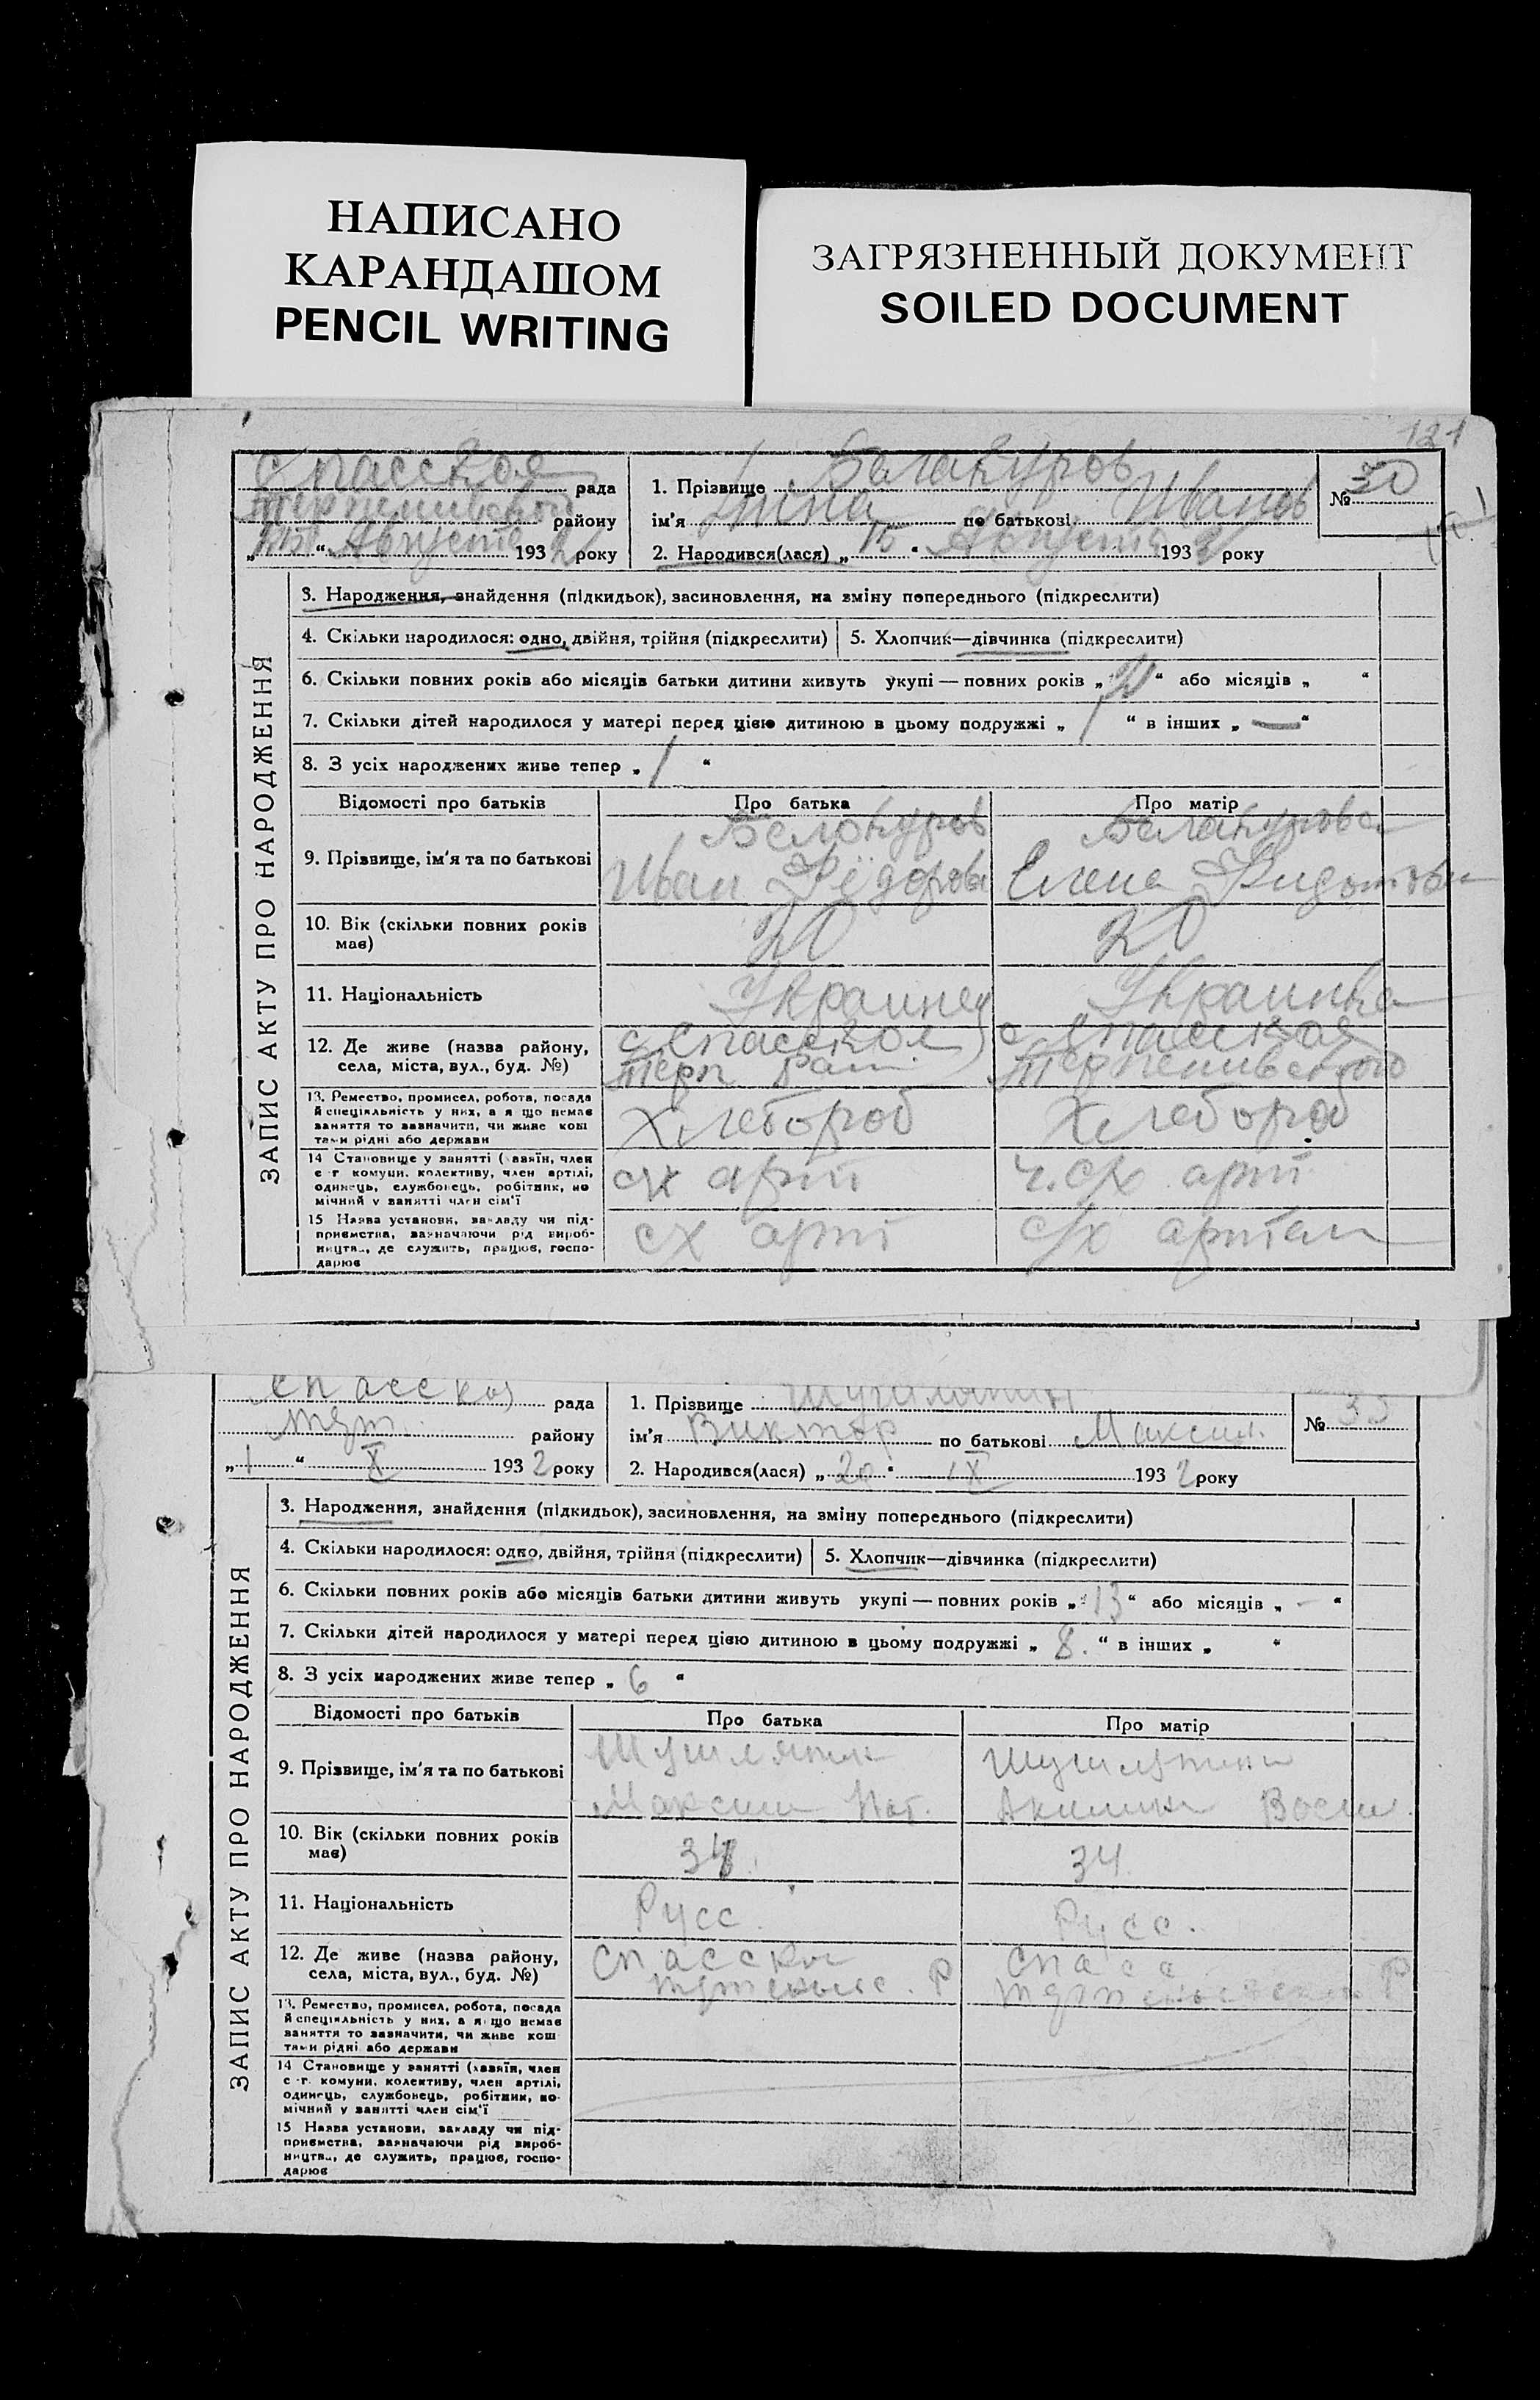 НАПИСАНО
КАРАНДАШОМ
PENCIL WRITING
ЗАГРЯЗНЕННЫЙ ДОКУМЕНТ
SOILED DOCUMENT
121
Спасское рада
району
„ “ Августа 1932 року
1. Прізвище Балакуров
ім'я Нина по батькові Иванов
2. Народився(лася) „15“ Августа 1932 року
№ 30
ЗАПИС АКТУ ПРО НАРОДЖЕННЯ
3. Народження, знайдення (підкидьок), засиновлення, на зміну попереднього (підкреслити)
4. Скільки народилося: одно, двійня, трійня (підкреслити)
5. Хлопчик—дівчинка (підкреслити)
6. Скільки повних років або місяців батьки дитини живуть укупі — повних років „2“ або місяців „ “
7. Скільки дітей народилося у матері перед цією дитиною в цьому подружжі „1“ в інших „—“
8. З усіх народжених живе тепер „1“
Відомості про батьків
Про батька
Про матір
9. Прізвище, ім'я та по батькові
Белокуров
Иван Фёдоров
Белакурова
Елена
10. Вік (скільки повних років має)
20
20
11. Національність
Украинец
Украинка
12. Де живе (назва району, села, міста, вул., буд. №)
с Спасское
Терп Рай
с Спасское
13. Ремество, промисел, робота, посада й спеціяльність у них, а якщо немає заняття то зазначити, чи живе коштами рідні або держави
Хлебороб
Хлебороб
14 Становище у занятті (хазяїн, член с.-г. комуни, колективу, член артілі, одинець, службовець, робітник, помічний у занятті член сім'ї
сх арт
ч. с/х арт
15 Назва установи, закладу чи підприємства, зазначаючи рід виробництва, де служить, працює, господарює
сх арт
с/х артели
Спасская рада
району
„1“ X 1932 року
1. Прізвище
ім'я Виктор по батькові Максим.
2. Народився(лася) „20“ IX 1932 року
№
ЗАПИС АКТУ ПРО НАРОДЖЕННЯ
3. Народження, знайдення (підкидьок), засиновлення, на зміну попереднього (підкреслити)
4. Скільки народилося: одно, двійня, трійня (підкреслити)
5. Хлопчик—дівчинка (підкреслити)
6. Скільки повних років або місяців батьки дитини живуть укупі — повних років „13“ або місяців „-“
7. Скільки дітей народилося у матері перед цією дитиною в цьому подружжі „8.“ в інших „ “
8. З усіх народжених живе тепер „6“
Відомості про батьків
Про батька
Про матір
9. Прізвище, ім'я та по батькові
Максим
Акилина Васил.
10. Вік (скільки повних років має)
34
11. Національність
Русс.
Русс.
12. Де живе (назва району, села, міста, вул., буд. №)
Р
Спасс
Р
13. Ремество, промисел, робота, посада й спеціяльність у них, а якщо немає заняття то зазначити, чи живе коштами рідні або держави
14 Становище у занятті (хазяїн, член с.-г. комуни, колективу, член артілі, одинець, службовець, робітник, помічний у занятті член сім'ї
15 Назва установи, закладу чи підприємства, зазначаючи рід виробництва, де служить, працює, господарює